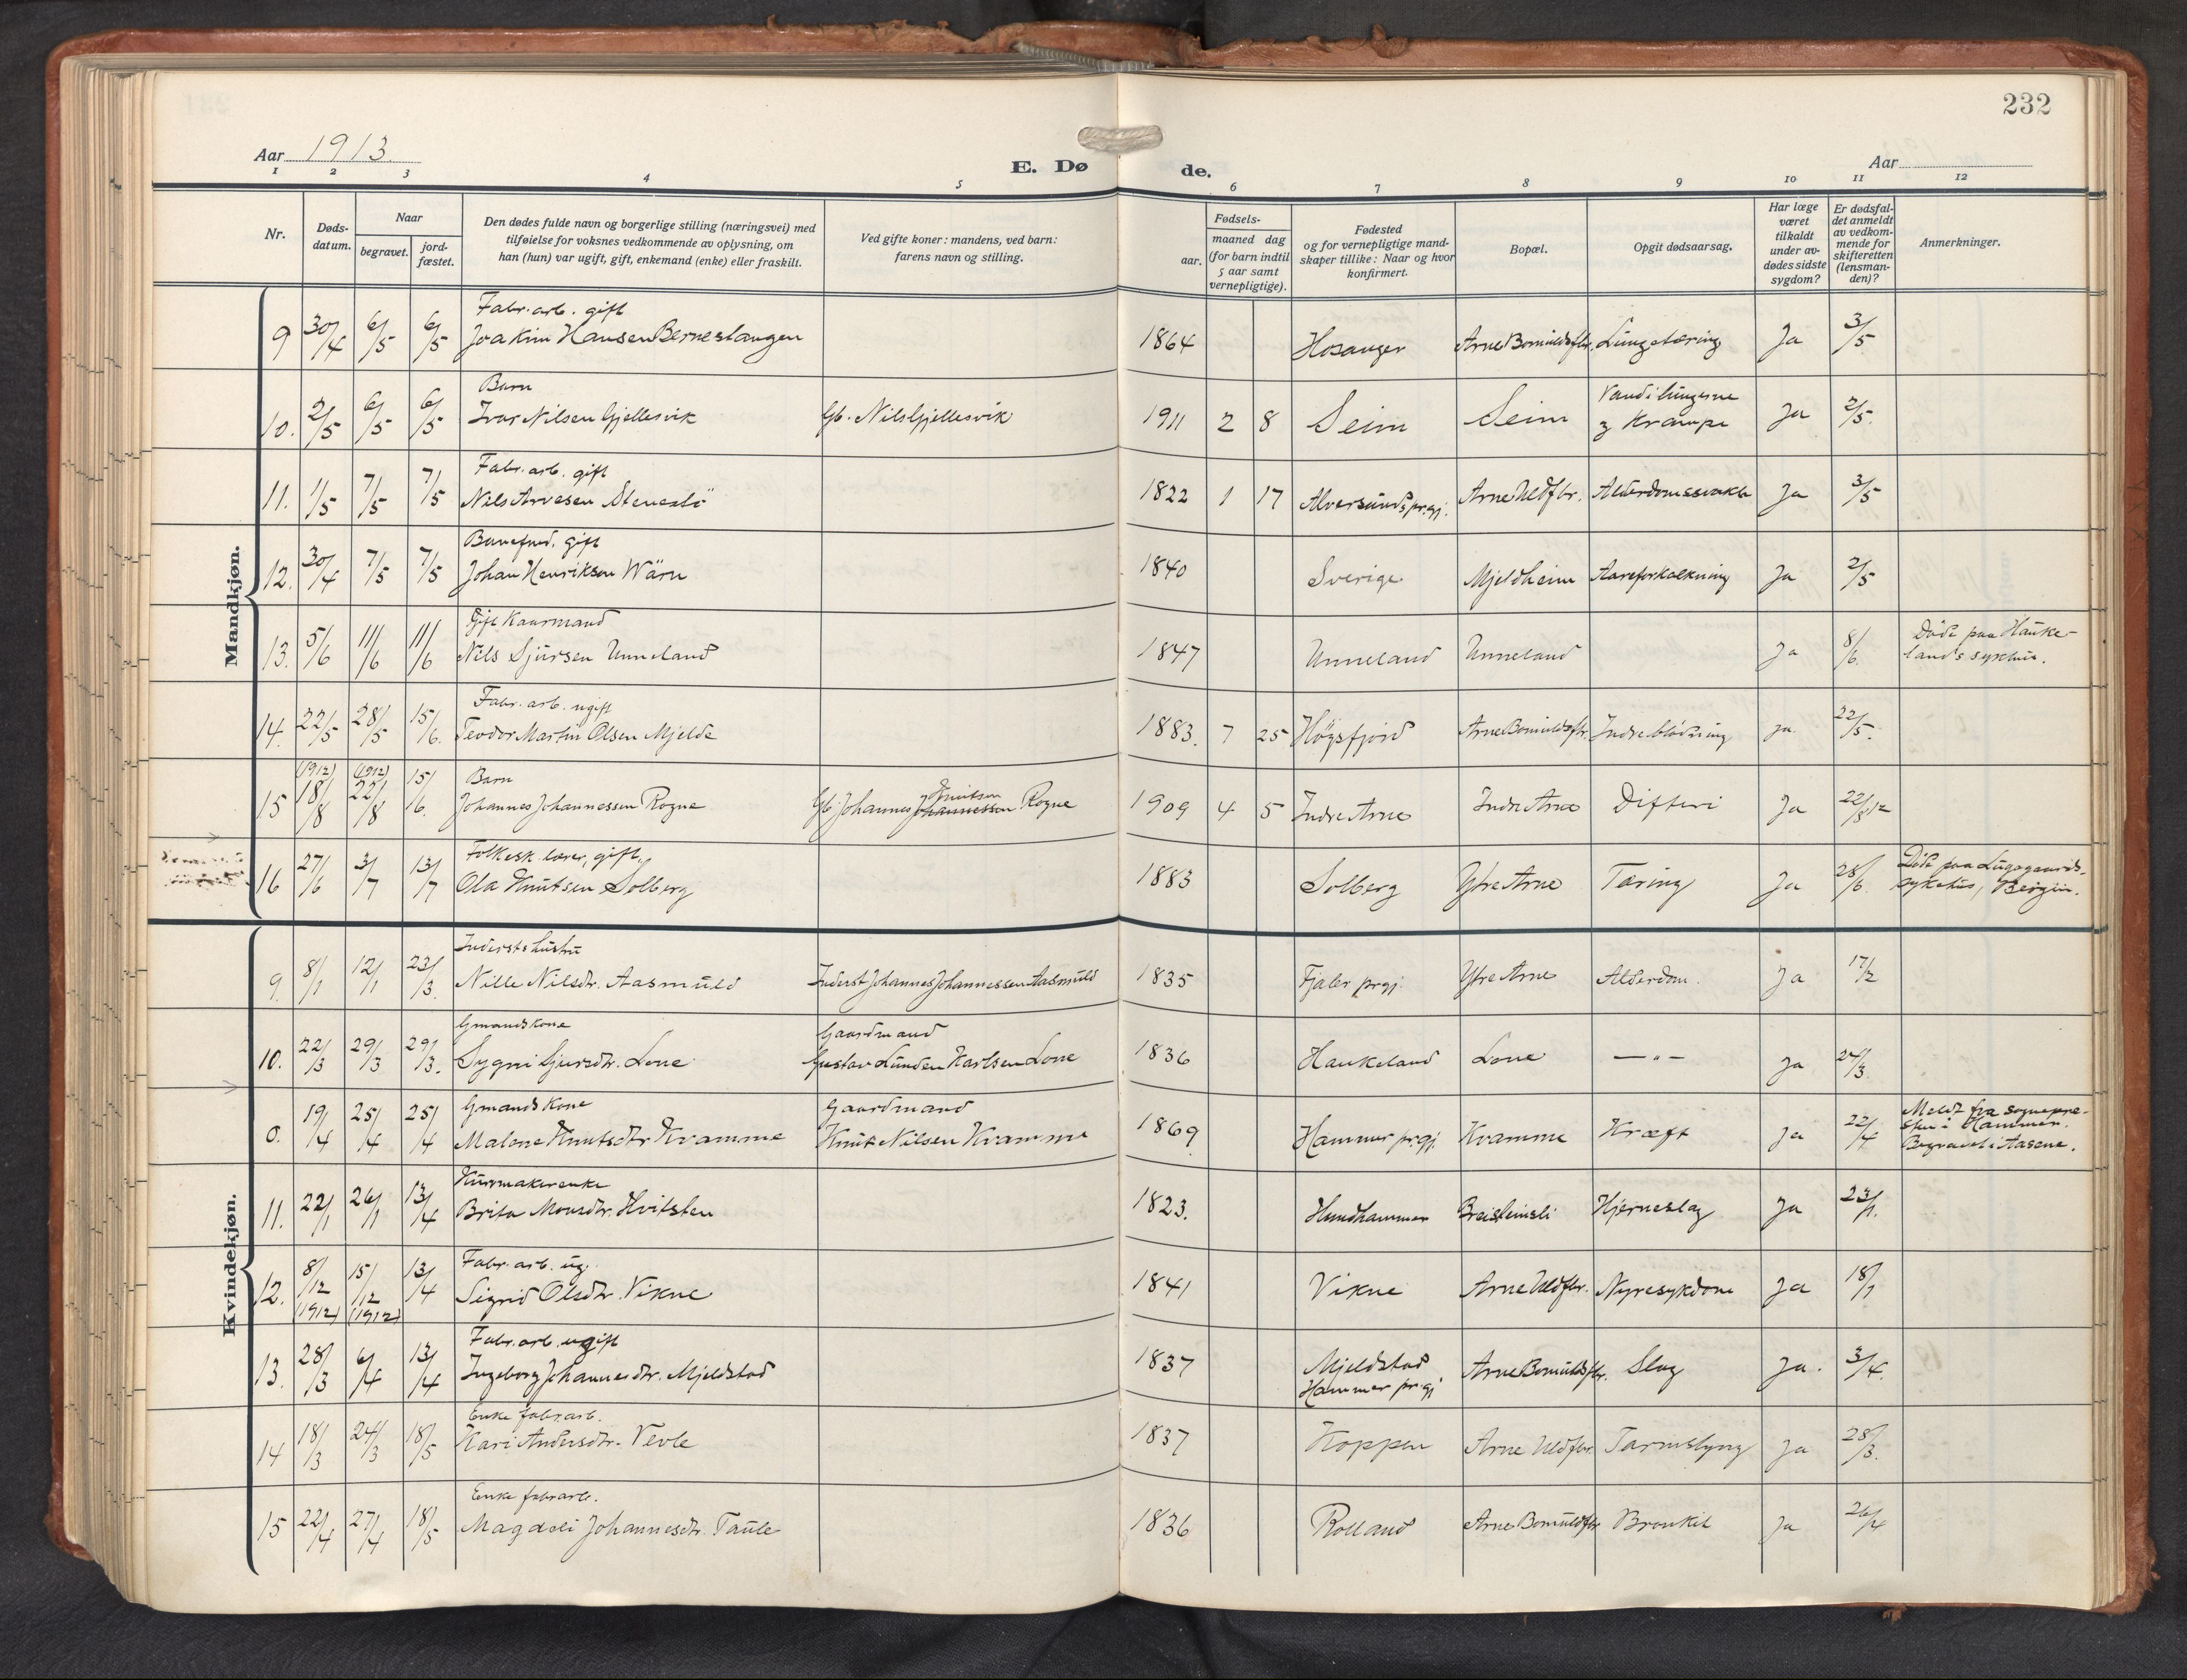 232
Aar 1913.
E. Døde.
Aar
1 2 3 4 5 6 7 8 9 10 11 12
Nr.
Døds-
datum.
Naar
begravet.
jord-
fæstet.
Den dødes fulde navn og borgerlige stilling (næringsvei) med
tilføielse for voksnes vedkommende av oplysning, om
han (hun) var ugift, gift, enkemand (enke) eller fraskilt.
Ved gifte koner: mandens, ved barn:
farens navn og stilling.
Fødsels-
aar.
maaned dag
(for barn indtil
5 aar samt
vernepligtige).
Fødested
og for vernepligtige mand-
skaper tillike: Naar og hvor
konfirmert.
Bopæl.
Opgit dødsaarsag.
Har læge
været
tilkaldt
under av-
dødes sidste
sygdom?
Er dødsfal-
det anmeldt
av vedkom-
mende for
skifteretten
(lensman-
den)?
Anmerkninger.
Mandkjøn.
Fabr. arb. gift
9 30/4 6/5 6/5 Joakim Hansen Bernestangen 1864 Hosanger Arne Bomuldsfbr. Lungetæring Ja 3/5
Barn
10. 2/5 6/5 6/5 Ivar Nilsen Gjellesvik Gb. Nils Gjellesvik 1911 2 8 Seim Seim Vand i lungerne
og Krampe Ja 2/5.
Fabr. arb. gift
11. 1/5 7/5 7/5 Nils Arvesen Stenestö 1822 1 17 Alversunds pr.gj. Arne Uldfbr. Alderdomssvakh Ja 3/5
Banefmd. gift
12. 30/4 7/5 7/5 Johan Henrikson Wärn 1840 Sverige Mjeldheim Aareforkalkning Ja 2/5
Gift Kaarmand
13. 5/6 11/6 11/6 Nils Sjursen Unneland 1847 Unneland Unneland Ja 8/6. Döde paa Hauke-
lands sykhus.
Fabr. arb. ugift
14. 22/5 28/5 15/6. Teodor Martin Olsen Mjelde 1883. 7 25 Högsfjord Arne Bomuldsfbr. Indre blödning Ja 22/5.
(1912) (1912) Barn
15 18/8 22/8 15/6. Johannes Johannessen Rogne Gb. Johannes Johannessen Knutson Rogne 1909 4 5 Indre Arne Indre Arne Difteri Ja 22/8 12
Folkesk. lærer, gift.
16 27/6 3/7 13/7 Ola Knutsen Solberg 1883 Solberg Ytre Arne Tæring Ja 28/6. Döde paa Lungegaards-
sykehus, Bergen.
Kvindekjøn.
Inderstshustru
9. 8/1 12/1 23/3. Nille Nilsdtr. Aasmuld Inderst Johannes Johannessen Aasmuld 1835 Fjaler prgj. Ytre Arne Alderdom. Ja 17/2
Gmandskone Gaardmand
10. 22/3 29/3 29/3. Sygni Sjursdtr. Lone Gustav Lunden Karlsen Lone 1836 Haukeland Lone — „ — Ja 24/3.
Gmandskone Gaardmand
0. 19/4 25/4 25/4 Malene Knutsdtr Kvamme Knut Nilsen Kvamme 1869 Hammer pr.gj. Kvamme Kræft Ja 22/4 Meldt fra sognepre-
sten i Hammer.
Begravet i Aasene.
Kurvmakerenke
11. 22/1 26/1 13/4 Brita Monsdtr. Hvitsten 1823. Hundhammer Breisteinsli Hjerneslag Ja 23/1.
Fabr. arb. ug.
12. 8/12 (1912) 15/12 (1912) 13/4 Sigrid Olsdtr. Vikne 1841 Vikne Arne Uldfbr. Nyresykdom Ja 18/1
Fabr. arb. ugift
13. 28/3 6/4 13/4 Ingeborg Johannesdtr. Mjeldstad 1837 Mjeldstad
Hammer pr.gj Arne Bomuldsfbr. Slag Ja. 3/4.
Enke fabr.arb.
14 18/3 24/3 18/5 Kari Andersdtr. Vevle 1837 Koppen Arne Uldfbr. Tarmslyng Ja 28/3.
Enke fabrarb.
15 22/4 27/4 18/5 Magdeli Johannesdtr. Taule 1836 Rolland Arne Bomuldfbr Bronkit Ja 26/4